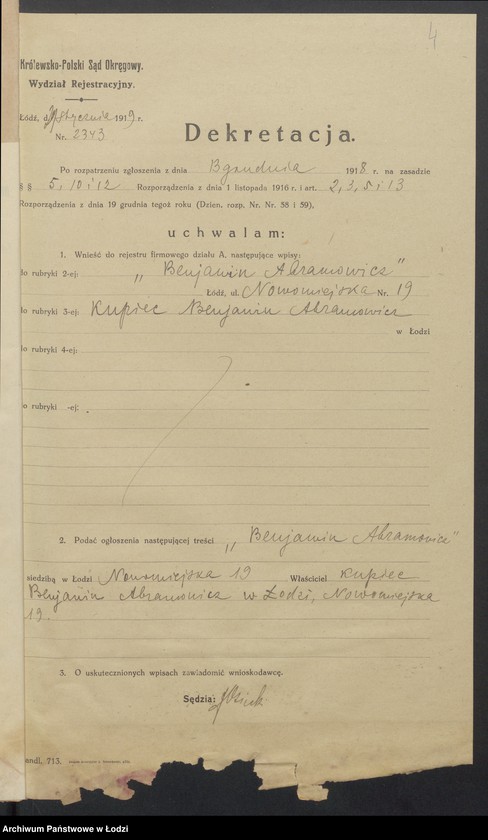 4
Królewsko-Polski Sąd Okręgowy.
Wydział Rejestracyjny.
Łódź, d. Stycznia 1919 r.
Nr. 2343
Dekretacja.
Po rozpatrzeniu zgłoszenia z dnia grudnia 1918 r. na zasadzie
§ § 5, 10 i 12 Rozporządzenia z dnia 1 listopada 1916 r. i art. 2, 3, 5 i 13
Rozporządzenia z dnia 19 grudnia tegoż roku (Dzien. rozp. Nr. Nr. 58 i 59),
uchwalam:
1. Wnieść do rejestru firmowego działu A, następujące wpisy:
do rubryki 2-ej: „Benjamin Abramowicz”
Łódź, ul. Nowomiejska Nr. 19
do rubryki 3-ej: Kupiec Benjamin Abramowicz
w Łodzi
do rubryki 4-ej:
o rubryki -ej:
2. Podać ogłoszenia następującej treści „Benjamin Abramowicz”
siedzibą w Łodzi Nowomiejska 19 Właściciel kupiec
Benjamin Abramowicz w Łodzi, Nowomiejska
19.
3. O uskutecznionych wpisach zawiadomić wnioskodawcę.
Sędzia:
andl. 713.
Archiwum Państwowe w Łodzi